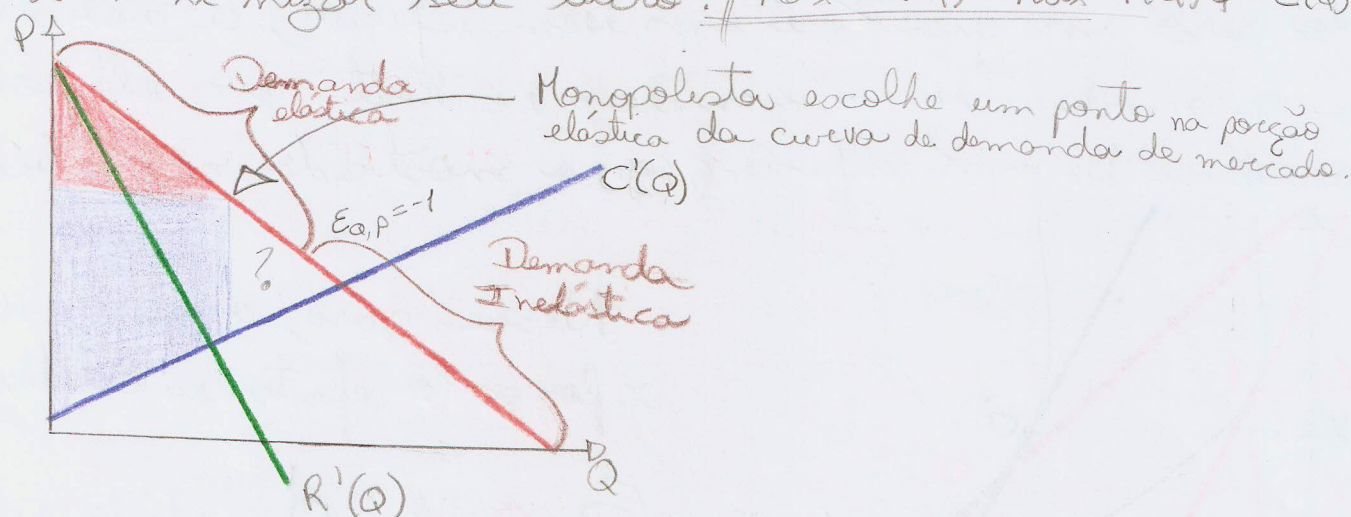 mizar seu lucro.
P
Demanda
elástica
Monopolista escolhe um ponto na porção
elástica da curva de demanda de mercado.
C'(Q)
εQ,P=-1
?
Demanda
Inelástica
Q
R'(Q)